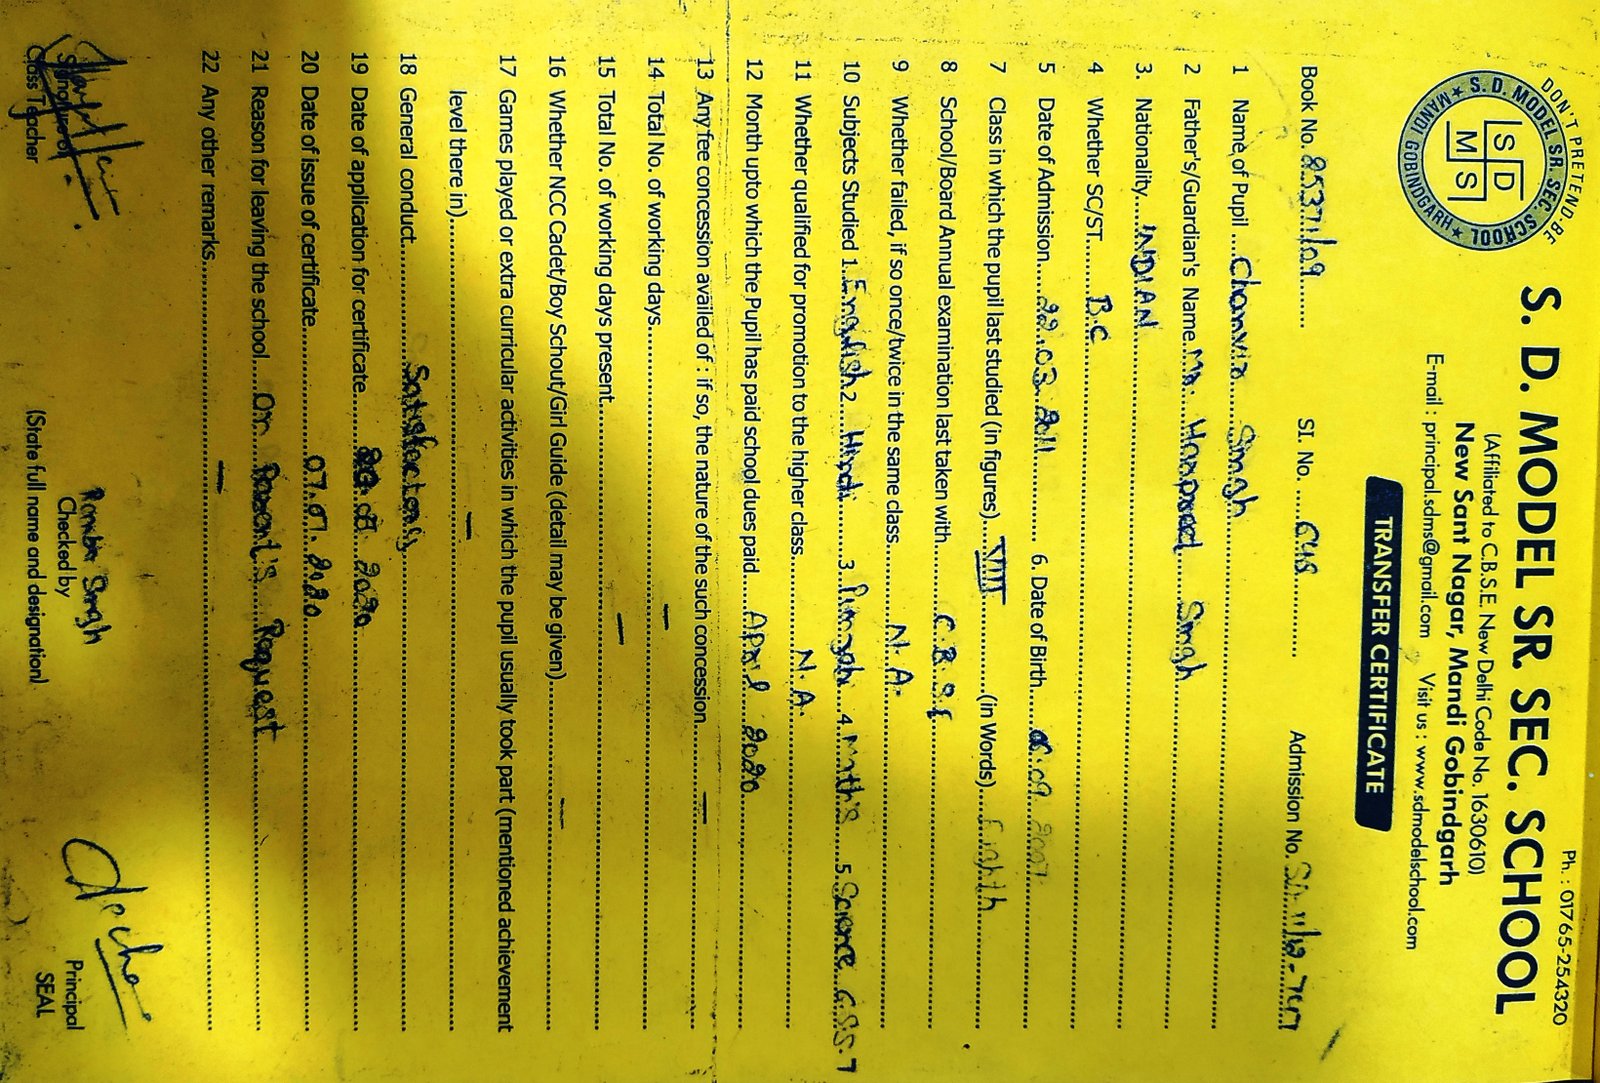 Ph. : 01765-254320
DON'T PRETEND, BE
S. D. MODEL SR. SEC. SCHOOL
MANDI GOBINDGARH
SD
MS
S. D. MODEL SR. SEC. SCHOOL
(Affiliated to C.B.S.E. New Delhi Code No. 1630610)
New Sant Nagar, Mandi Gobindgarh
E-mail : principal.sdms@gmail.com Visit us : www.sdmodelschool.com
TRANSFER CERTIFICATE
Book No. SI. No. Admission No.
1 Name of Pupil Singh
2 Father's/Guardian's Name Mr. Singh
3. Nationality INDIAN
4 Whether SC/ST B.C
5 Date of Admission 22.03.2011 6. Date of Birth .09.2007
7 Class in which the pupil last studied (in figures) VIII (in Words) Eighth
8 School/Board Annual examination last taken with C.B.S.E
9 Whether failed, if so once/twice in the same class N.A.
10 Subjects Studied 1. English 2. Hindi 3. Punjabi 4. Math's 5 Science
11 Whether qualified for promotion to the higher class. N.A.
12 Month upto which the Pupil has paid school dues paid April 2020
13 Any fee concession availed of : if so, the nature of the such concession —
14 Total No. of working days —
15 Total No. of working days present —
16 Whether NCC Cadet/Boy Schout/Girl Guide (detail may be given) —
17 Games played or extra curricular activities in which the pupil usually took part (mentioned achievement
level there in) —
18 General conduct Satisfactory
19 Date of application for certificate 2020
20 Date of issue of certificate 07.07.2020
21 Reason for leaving the school On Parent's Request
22 Any other remarks —
Singh
Class Teacher Checked by Principal
(State full name and designation) SEAL